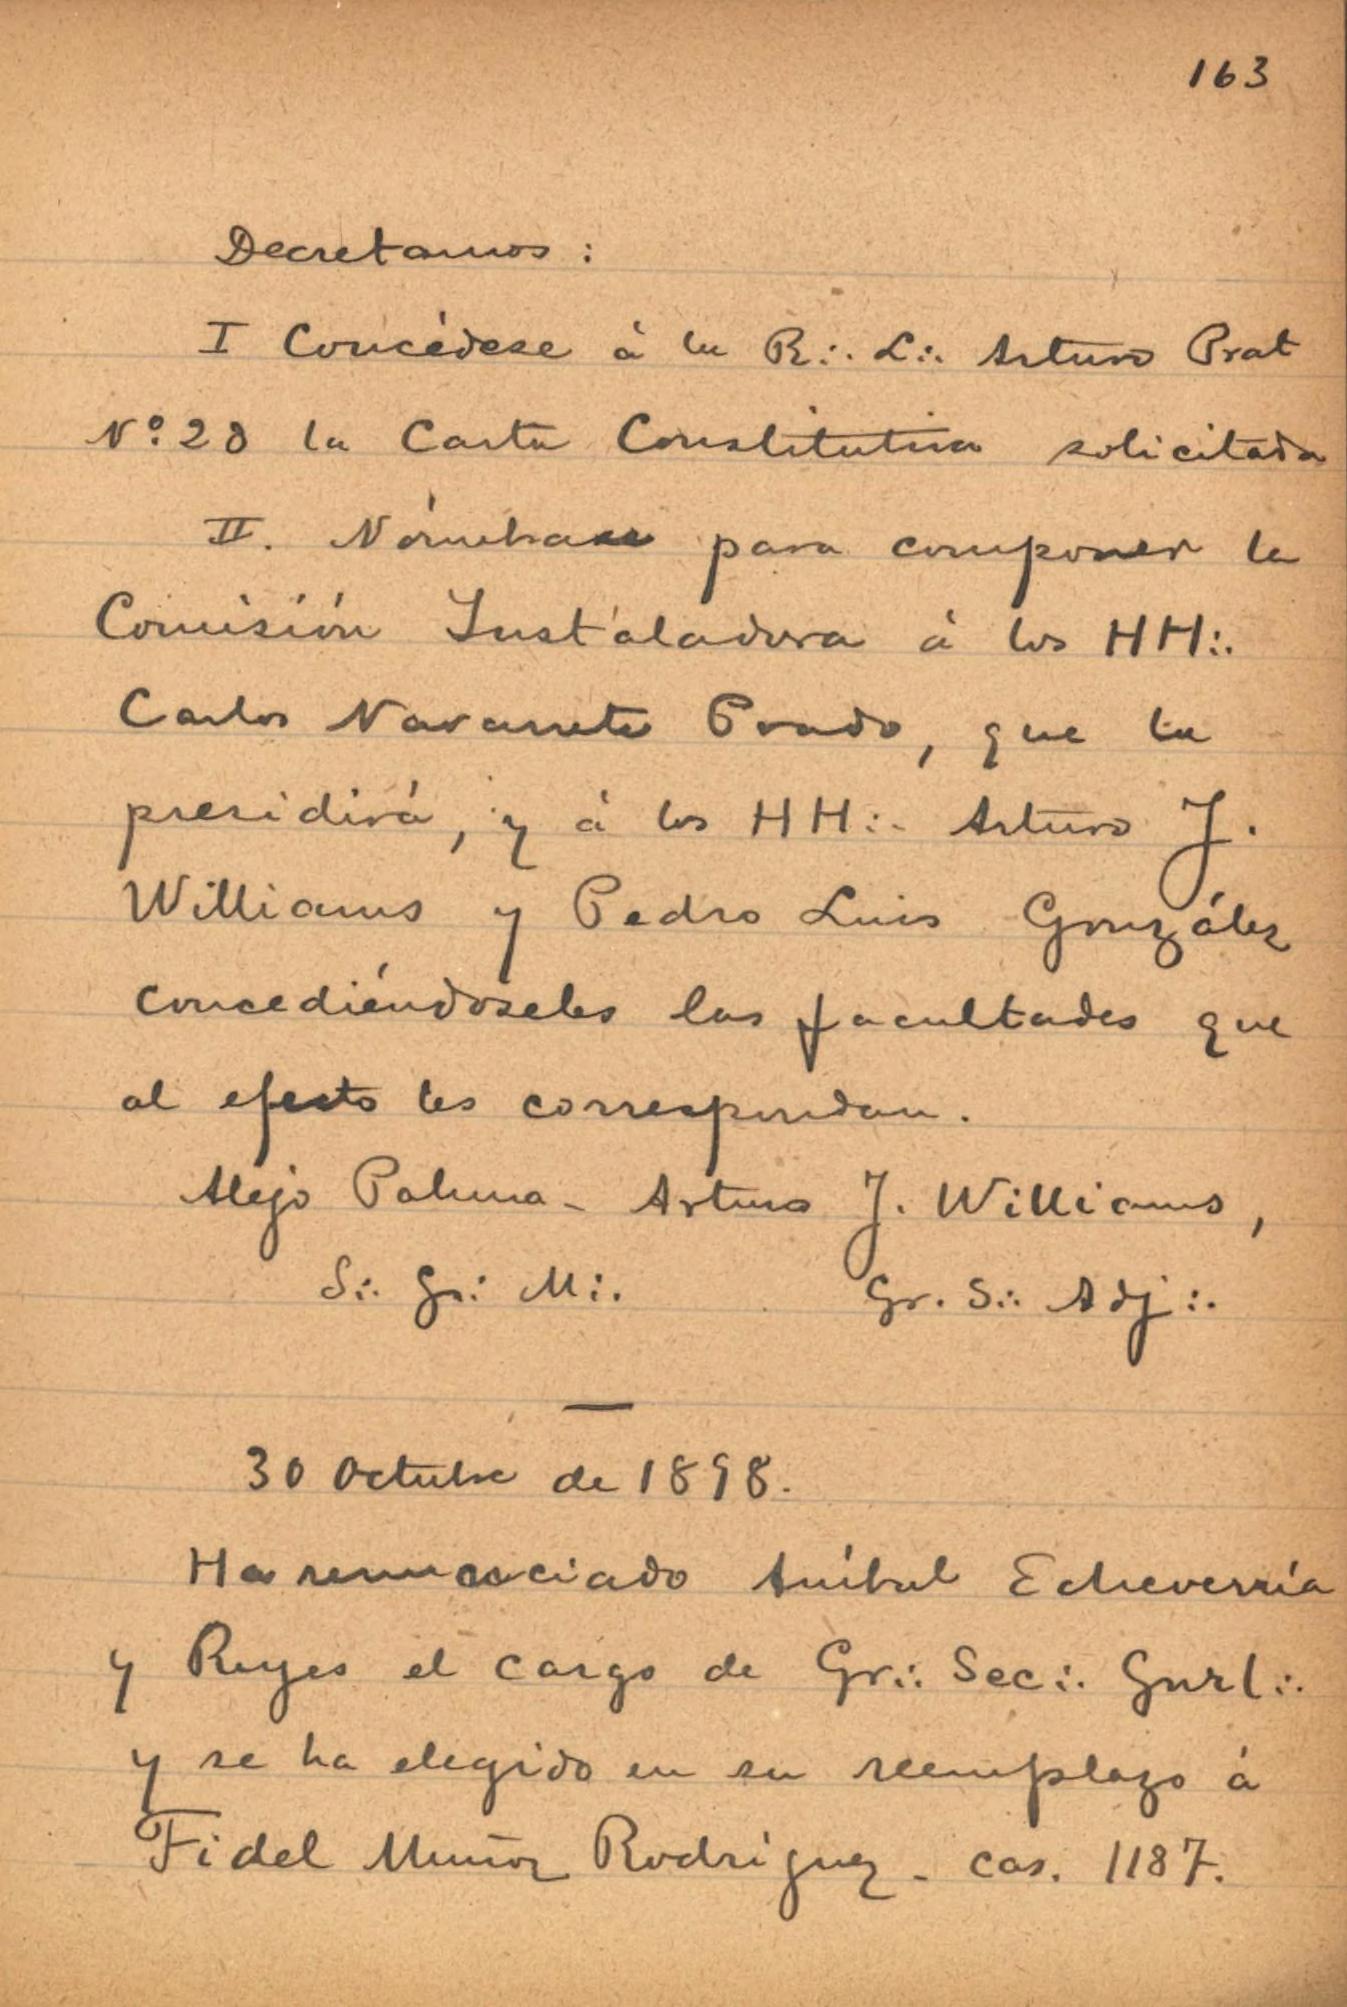 163
Decretamos :
I Concédese á la R∴ L∴ Arturo Prat
Nº. 28 la Carta Constitutiva solicitada
II. Nómbrase para componer la
Comisión Instaladora á los HH∴
Carlos Navarrete Prado, que la
presidirá, y á los HH∴ Arturo J.
Williams y Pedro Luis González
concediéndoseles las facultades que
al efecto les correspondan.
Alejo Palma - Arturo J. Williams,
S∴ Gr∴ M∴ Gr. S∴ Adj∴
30 Octubre de 1898.
Ha renunciado Aníbal Echeverría
y Reyes el cargo de Gr∴ Sec∴ Gnrl∴
y se ha elegido en su reemplazo á
Fidel Muñoz Rodríguez - cas. 1187.